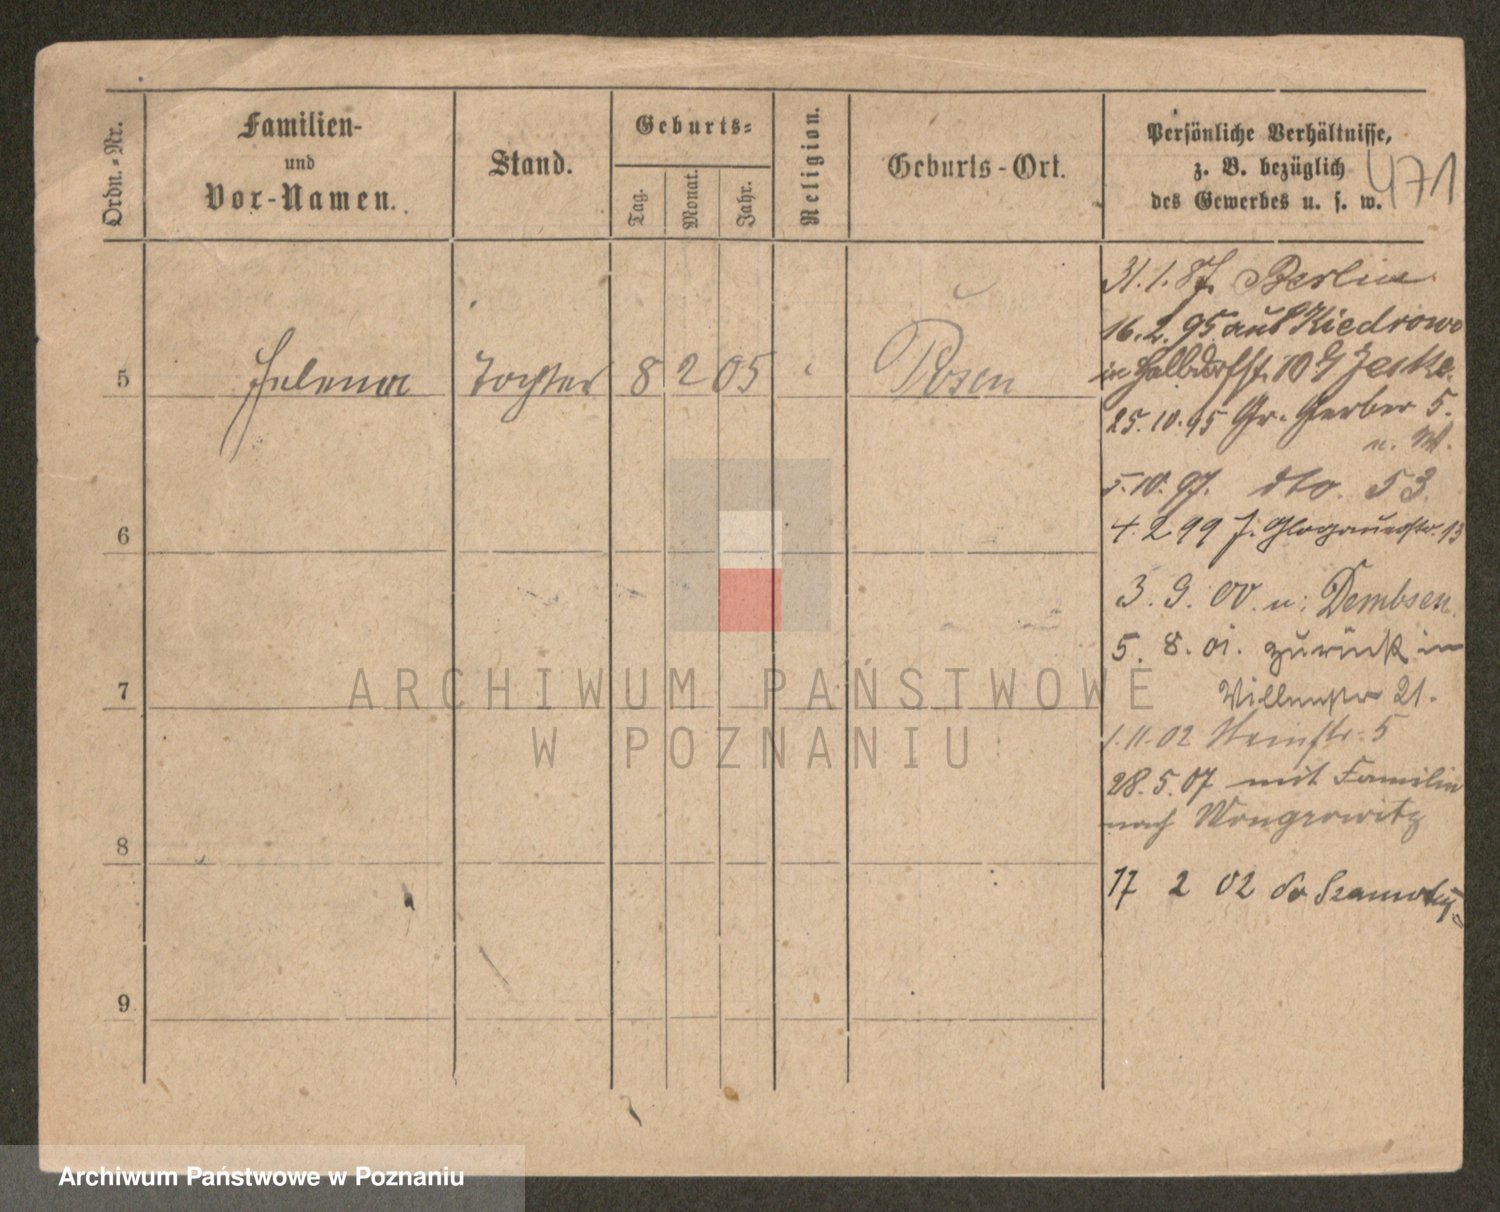 Ordn.-Nr.
Familien-
und
Vor-Namen.
Stand.
Geburts-
Tag.
Monat.
Jahr.
Religion.
Geburts-Ort.
Persönliche Verhältnisse,
z. B. bezüglich
des Gewerbes u. s. w.
471
5 Helena Tochter 8 2 05 " Posen
6
7
8
9
31.1.87. Berlin
16.2.95 aus Kiedrowo
in Halbdorfst. 10 J Jeske.
25.10.95 Gr. Gerber 5.
u. W.
5.10.97. dto. 53.
4.2.99 J. Glogauerstr. 13
3.9.00. n. Dembsen
5.8.01. zurück in
Villenstr 21.
1.11.02 str. 5
28.5.07 mit Familie
nach Wongrowitz
17 2 02 Szamotuly
ARCHIWUM PAŃSTWOWE
W POZNANIU
Archiwum Państwowe w Poznaniu